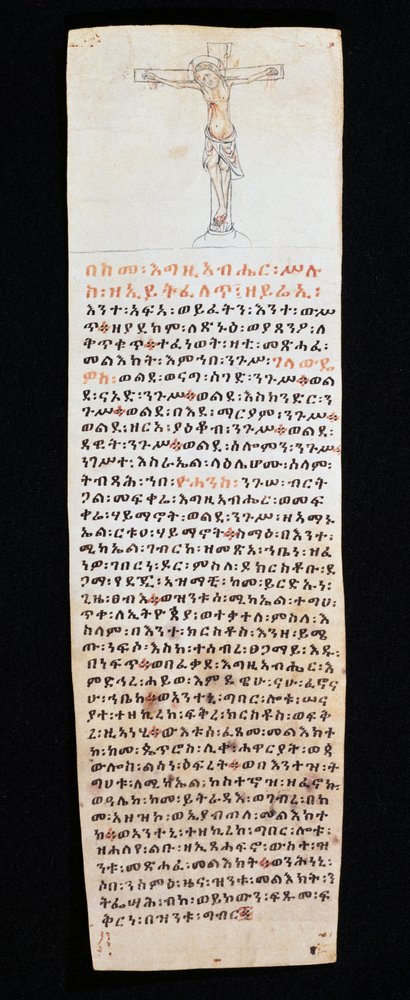 በከመ፡እግዚአብሔር፡ሥሉ
ስ፡ዘኢይትፌለጥ፤ዘይሬኢ፡
እንተ፡አፍአ፡ወይፈትን፡እንተ፡ውሥ
ጥ፨ዘያደክም፡ለጽኑዕ፡ወያጸንዖ፡ለ
ቅጥቁጥ፨ተፈነወት፡ዛቲ፡መጽሐፈ፡
መልእክት፡እምኀበ፡ንጉሥ፡ገላውዴ
ዎስ፡ወልደ፡ወናግ፡ሰገድ፡ንጉሥ፨ወል
ደ፡ናኦድ፡ንጉሥ፨ወልደ፡እስክንድር፡ን
ጉሥ፨ወልደ፡በእደ፡ማርያም፡ንጉሥ፨
ወልደ፡ዘርአ፡ያዕቆብ፡ንጉሥ፨ወልደ፡
ዳዊት፡ንጉሥ፨ወልደ፡ሰሎሞን፡ንጉሥ፨
ንገሥተ፡እስራኤል፡ላዕሌሆሙ፡ሰላም፡
ትብጻሕ፡ኀበ፡ዮሐንስ፡ንጉሠ፡ብርት
ጋል፡መፍቀሬ፡እግዚአብሔር፡ወመፍ
ቀሬ፡ሃይማኖት፡ወልደ፡ንጉሥ፡ዘአማኑ
ኤል፡ርቱዐ፡ሃይማኖት፨ስማዕ፡በእንተ፡
ሚካኤል፡ገብርከ፡ዘመጽአ፡ኀቤነ፡ዘፈ
ነዎ፡ገበርነ፡ዶር፡ምስለ፡ዶክርስቶቡ፡ደ
ጋማ፡አዝማቺ፡ከመ፡ይርድኡነ፡
ጊዜ፡ፀብእ፨ወዝንቱሰ፡ሚካኤል፡ተግህ፡
ጥቀ፡ለኢትዮጵያ፡ወተቃተለ፡ምስለ፡እ
ስላም፡በእንተ፡ክርስቶስ፡እንዘ፡ይሜ
ጡ፡ነፍሶ፡እስከ፡ተሰብረ፡ፀጋማይ፡እዱ፡
በነፍጥ፨ወበፈቃደ፡እግዚአብሔር፡እ
ምድኅረ፡ሐይወ፡እምደዌሁ፡ናሁ፡ፈኖና
ሁ፡ኀቤከ፨ወአንተኒ፡ግበር፡ሎቱ፡ሠና
ያተ፡ተዘኪረከ፡ፍቅረ፡ክርስቶስ፡ወፍቅ
ረ፡ዚአነሂ፨ውእቱሰ፡ፈጸመ፡መልእክተ
ከ፡ከመ፡ጴጥሮስ፡ሊቀ፡ሐዋርያት፡ወጳ
ውሎስ፡ልሳነ፡ዕፍረት፨ወበእንተዝ፡ት
ግህቱ፡ለሚካኤል፡ዘፈኖከ
ከመ፡ይትራዳእ፡ወገብረ፡በከ
መ፡አዘዝኮ፡ወኢያብጠለ፡መልእክተ
ከ፨ወአንተኒ፡ተዘኪረከ፡ግበር፡ሎቱ፡
ዘሐለየ፡ልቡ፡ዘኢጸሐፍኖ፡ውስተ፡ዝ
ንቱ፡መጽሐፈ፡መልእክት፨ወንሕነኒ፡
ሶበ፡ንሰምዕ፡ዜና፡ዝንቱ፡መልእክት፡ን
ትፌሣሕ፡ብከ፡ወይከውን፡ፍጹመ፡ፍ
ቅርነ፡በዝንቱ፡ግብር፨